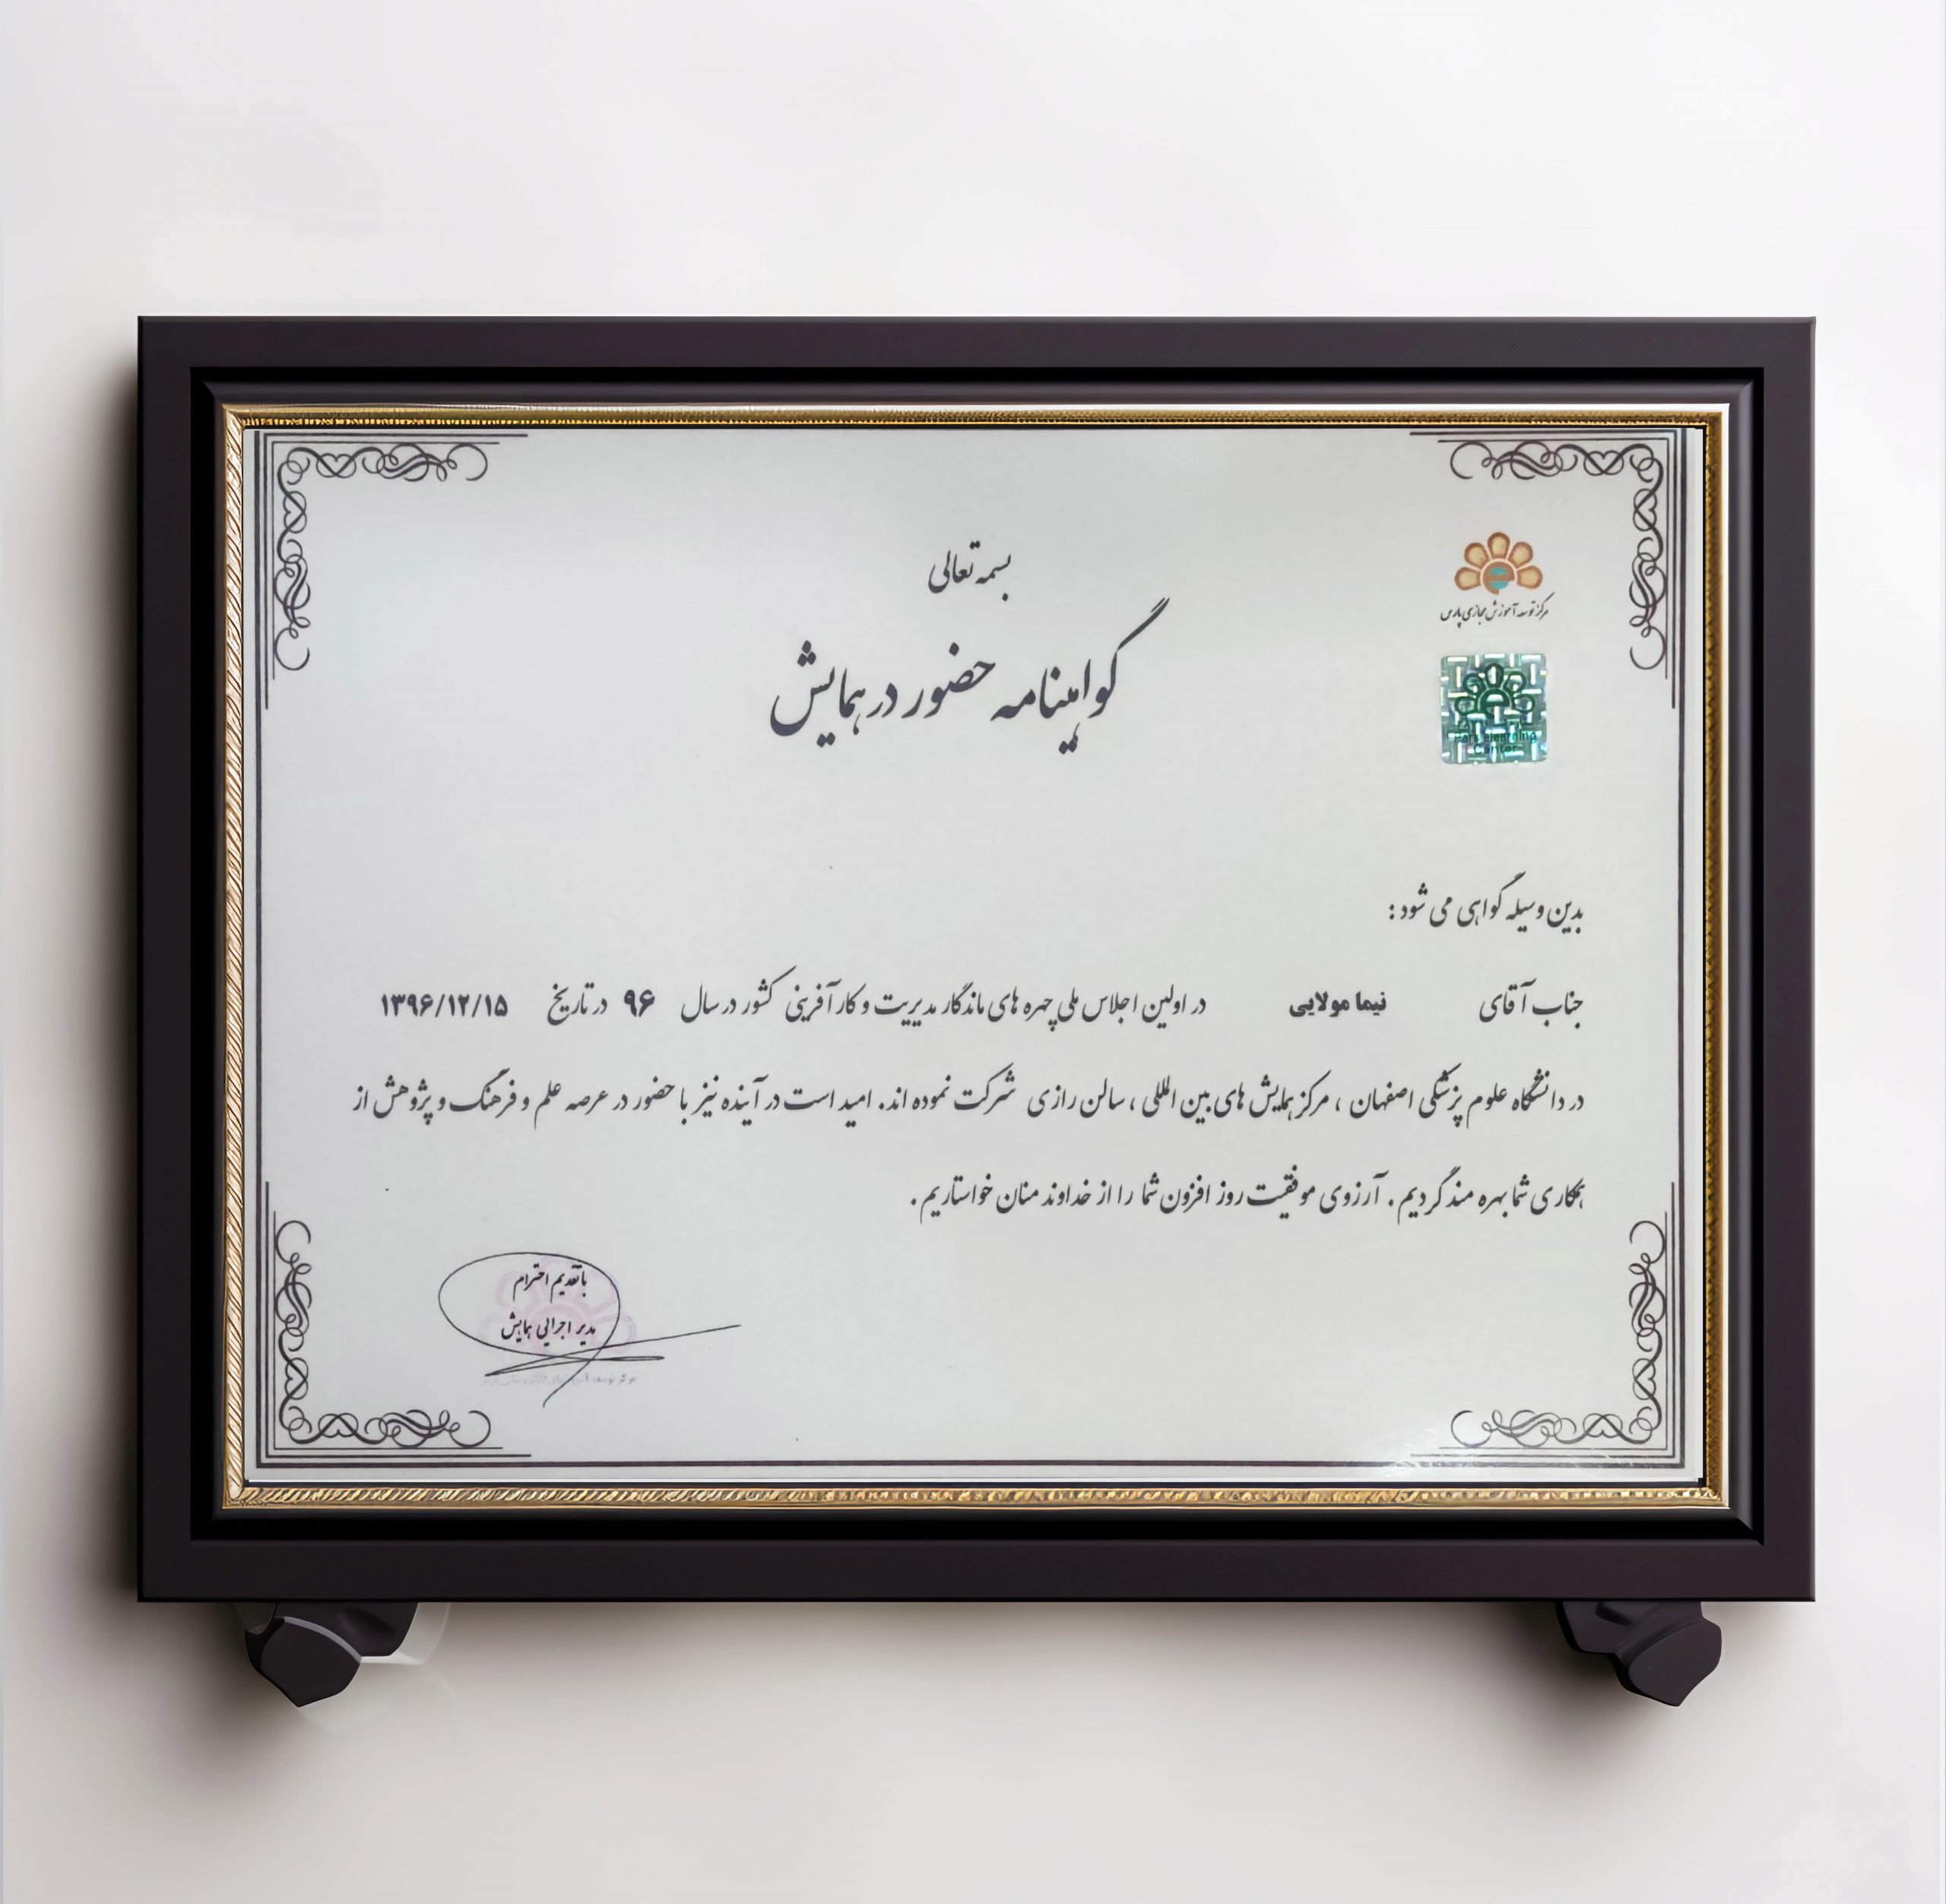 بسمه تعالی
گواهینامه حضور در همایش
مرکز توسعه آموزش مجازی پارس
Pars elearning
Center
بدین وسیله گواهی می شود :
جناب آقای نیما مولایی در اولین اجلاس ملی چهره های ماندگار مدیریت و کارآفرینی کشور در سال ۹۶ در تاریخ ۱۳۹۶/۱۲/۱۵
در دانشگاه علوم پزشکی اصفهان ، مرکز همایش های بین المللی ، سالن رازی شرکت نموده اند. امید است در آینده نیز با حضور در عرصه علم و فرهنگ و پژوهش از
همکاری شما بهره مند گردیم . آرزوی موفقیت روز افزون شما را از خداوند منان خواستاریم .
با تقدیم احترام
مدیر اجرایی همایش